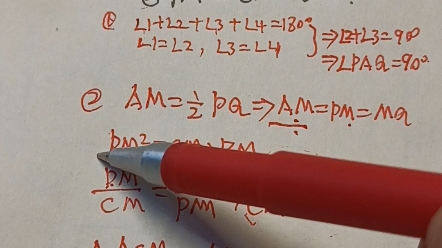 ① ∠1+∠2+∠3+∠4=180°
∠1=∠2, ∠3=∠4 } ⇒∠2+∠3=90°
⇒∠PAQ=90°.
② AM=½PQ⇒AM=PM=MQ
PM²=
PM/CM = /PM